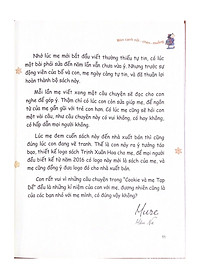 Nhớ lúc mẹ mới bắt đầu viết thường thiếu tự tin, có lúc
một bài phải sửa đến năm lần vẫn chưa vừa ý. Nhưng trước sự
động viên của bố và con, mẹ ngày càng tự tin, và đã thuận lợi
hoàn thành bộ sách này.
Mỗi lần mẹ viết xong một câu chuyện sẽ đọc cho con
nghe để góp ý. Thậm chí có lúc con còn sửa giúp mẹ, để ngắn
từ của mẹ gần gũi với trẻ con hơn. Có lúc mẹ cũng sẽ hỏi con
một vài vấn đề, như câu chuyện này có vui không, có hay không,
có hấp dẫn mọi người không.
Lúc mẹ đem cuốn sách này đến nhà xuất bản thì cũng
đúng lúc con đang vẽ tranh. Thế là con nảy ra ý tưởng táo
bạo, thiết kế logo sách Trịnh Xuân Hoa cho mẹ, để mọi người
đều biết kể từ năm 2016 có logo này mới là sách của mẹ, và
mẹ cũng đồng ý đưa logo đó cho nhà xuất bản.
Con rất vui vì những câu chuyện trong "Cookie và mẹ Tạp
Dề" đều là những kỉ niệm của con với mẹ, đương nhiên cũng là
của các bạn nhỏ với mẹ mình, có đúng vậy không?